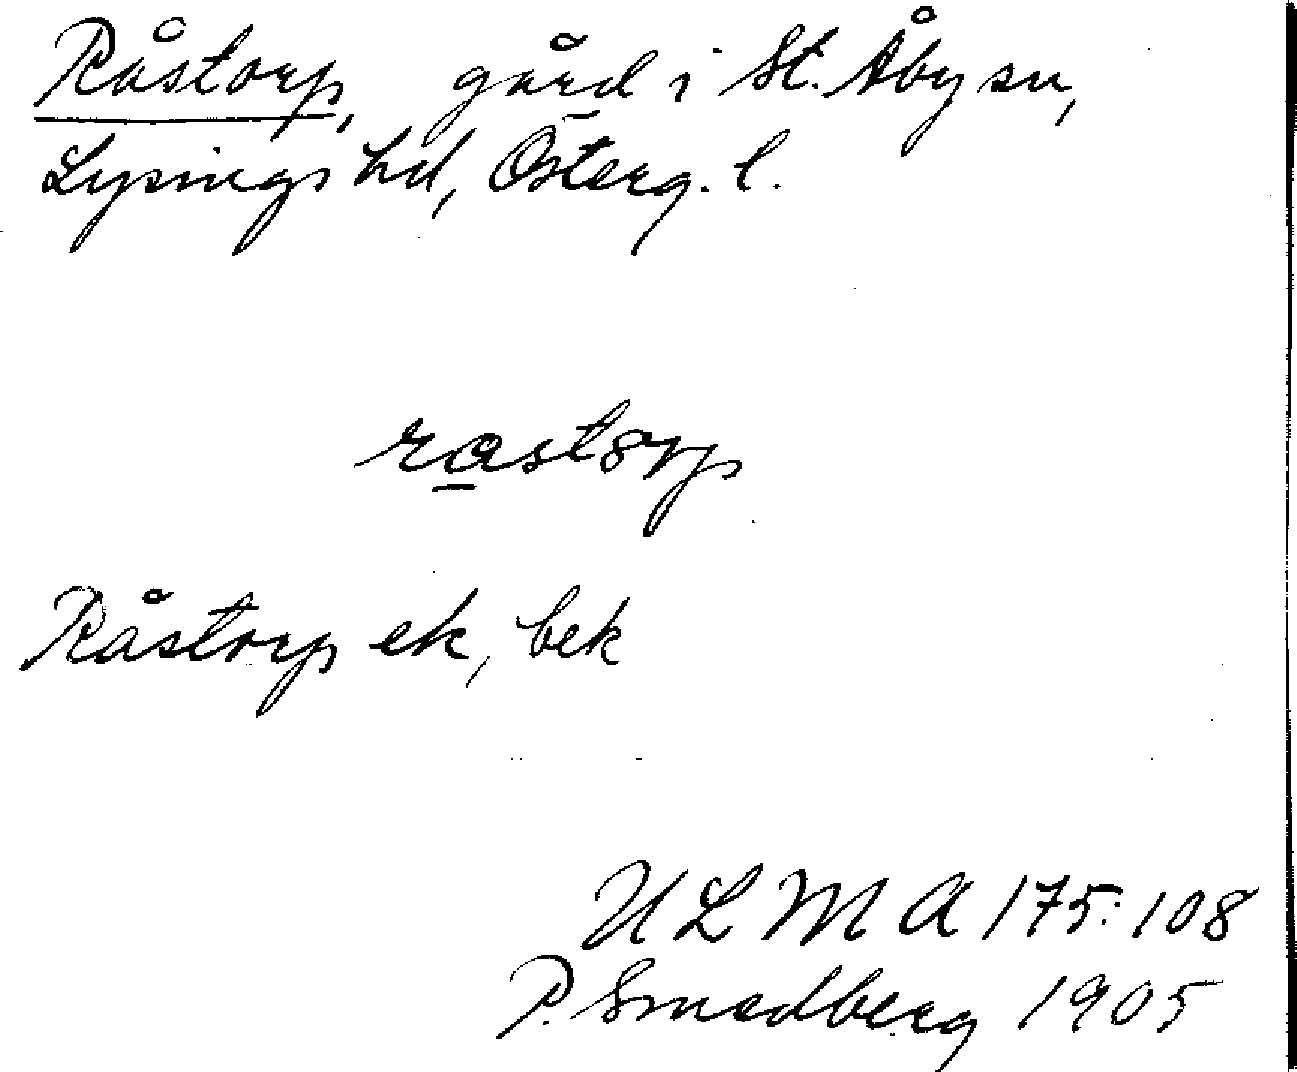 Råstorp, gård i St. Åby sn,
Lysings hd, Österg. l.
rastorp
Råstorp ek, bek
ULMA 175:108
P. Smedberg 1905